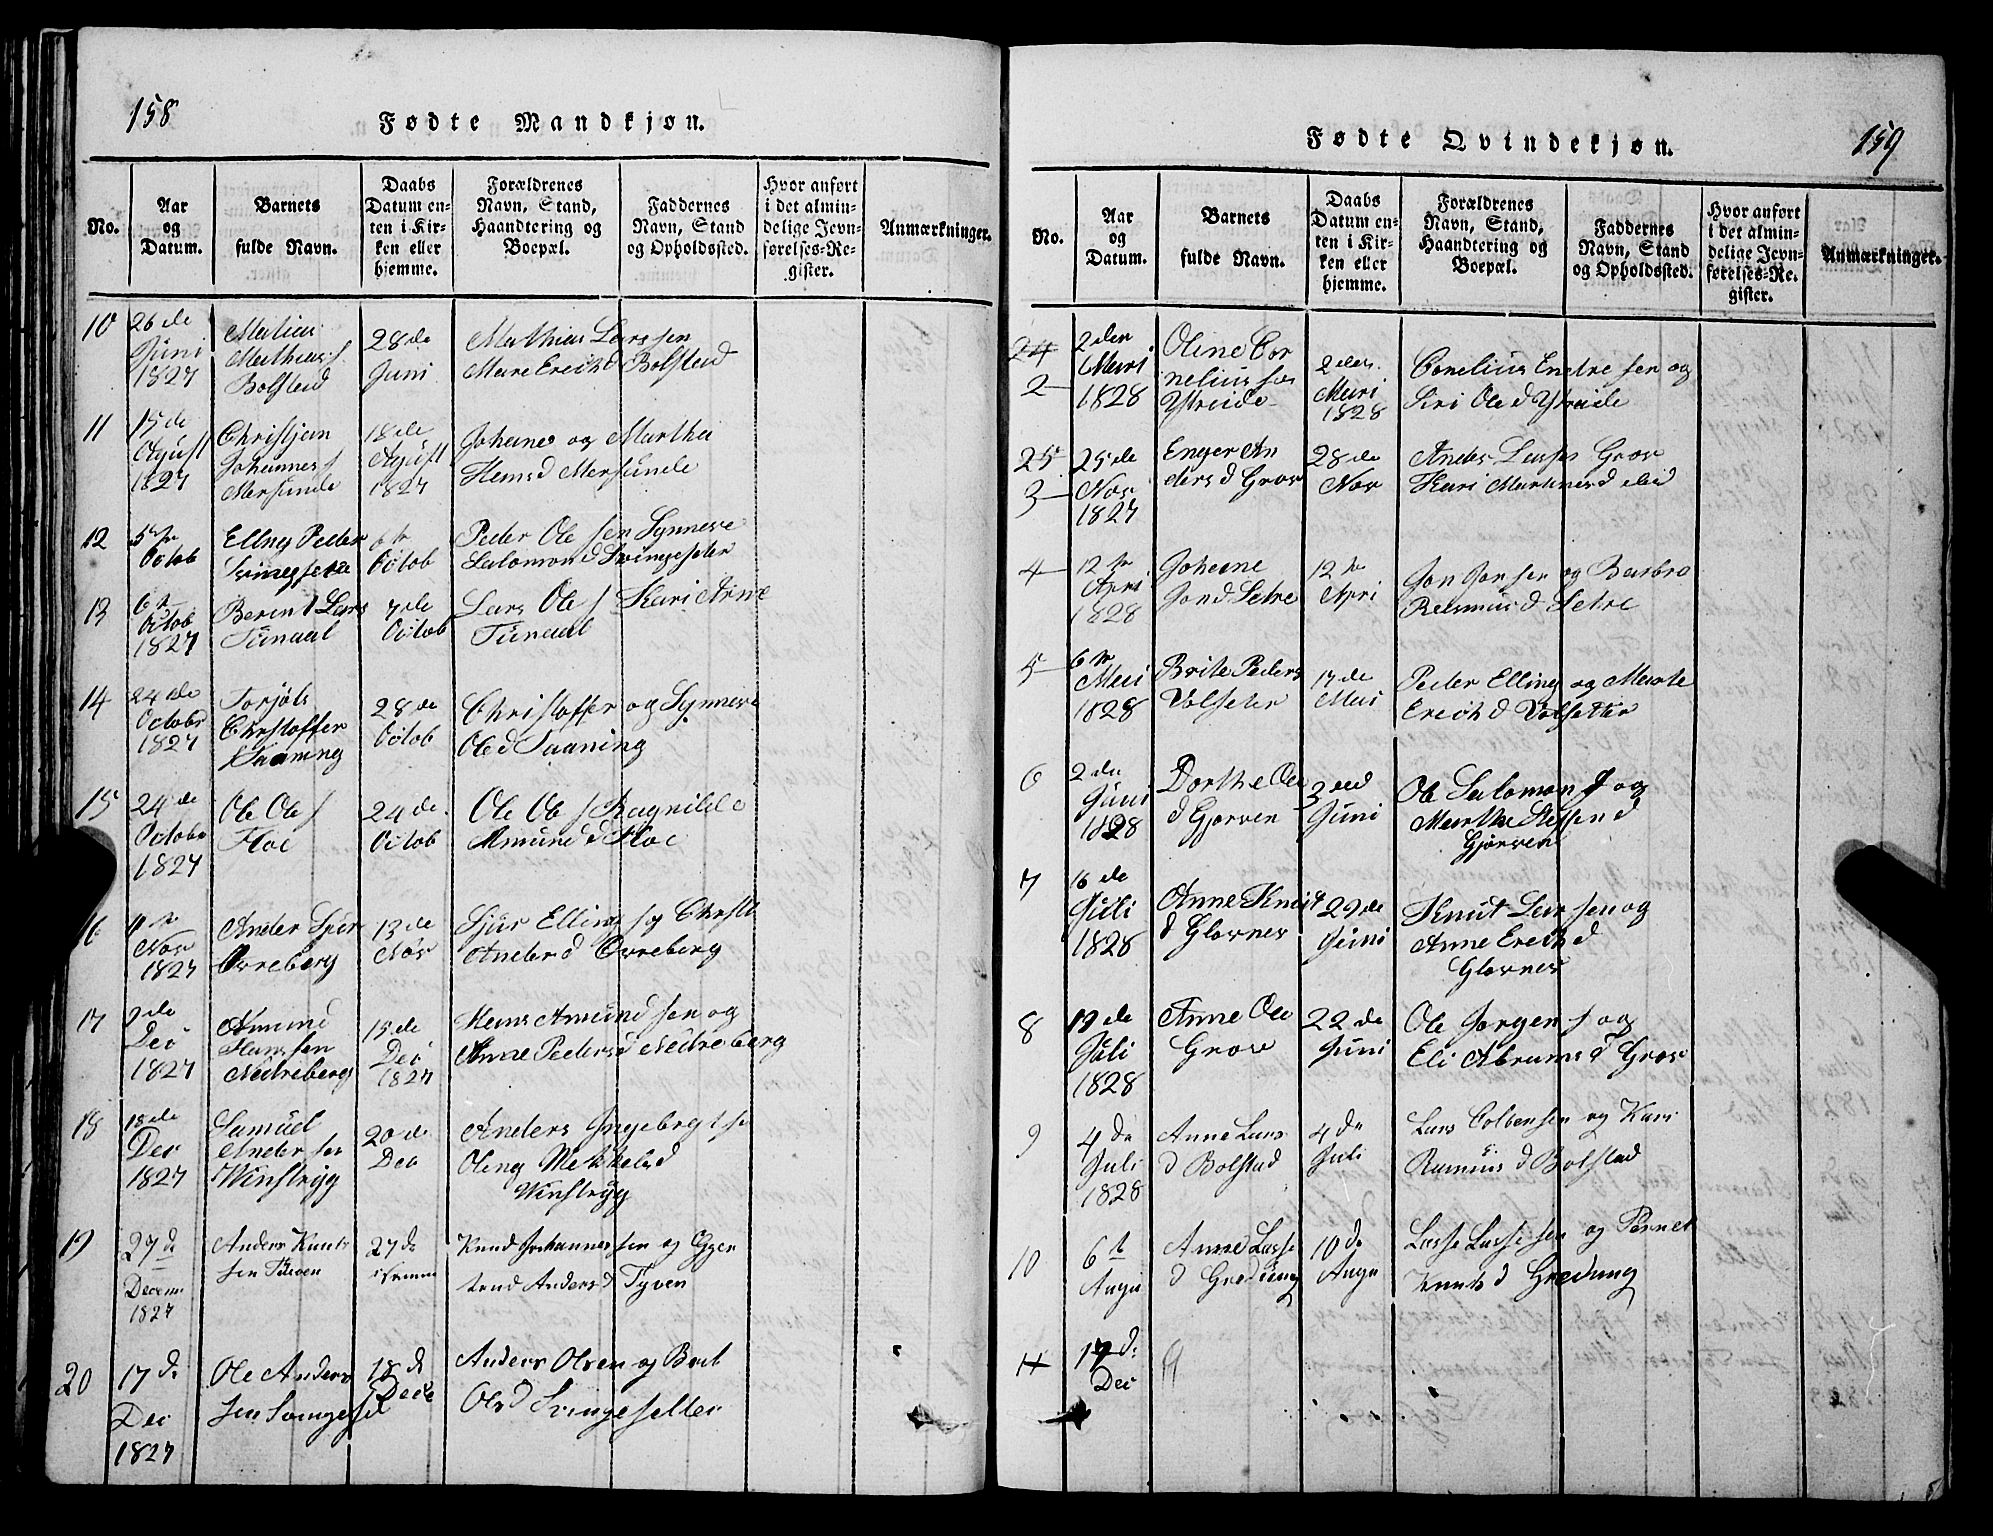 158
Fødte Mandkjøn.
No.
Aar
og
Datum.
Barnets
fulde Navn.
Daabs
Datum en-
ten i Kir-
ken eller
hjemme.
Forældrenes
Navn, Stand,
Haandtering og
Boepæl.
Faddernes
Navn, Stand
og Opholdssted.
Hvor anført
i det almin-
delige Jevn-
førelses-Re-
gister.
Anmærkninger.
10
26 de
Juni
1827
Mathias f
Bolstad
28 de
Juni
Mathias Larssen
Mare Erich d Bolstad
11
15 de
Agust
1827
Christjan
Johannes f
Mersunde
18 de
Agust
1827
Johanes og Martha
Hans d Mersunde
12
5 te
Octob
Elling Peder
6 te
Octob
Peder Ole sen Synneve
Salomon d Svingeseter
13
6 te
Octob
1827
Berent Lars
Tunaal
7 de
Octob
Lars Ole f Kari Arne
Tunaal
14
24 de
Octobr
1827
Christoffer
28 de
Octob
Christoffer og Synneve
Ole d Taaning
15
24 de
Octobr
1827
Ole Ole f
Floe
24 de
Octob
Ole Ole f Ragnilde
Amund d Floe
16
Nov
1827
Ander Sjur
Øvreberg
13 de
Nov
Sjur Elling f og Christi
Ander d Øvreberg
17
9 de
Dec
1827
Amund
Hanssen
Nedreberg
15 de
Dec
1827
Hans Amund sen og
Anne Peders d Nedreberg
18
18 de
Dec
1827
Samuel
Ander sen
Winstryg
20 de
Dec
Anders Ingebrgt se
Oling Mekkels d
Winstryg
19
27 d
Decem
1827
Anders Knuts
sen
27 d
Knud Johannes sen og
Anders d Tyven
20
17 d
Dec
1827
Ole Anders
sen
18 d
Dece
Anders Olsen og Brit
Ols d Svingesetter
159
Fødte Qvindekjøn.
No.
Aar
og
Datum.
Barnets
fulde Navn.
Daabs
Datum en-
ten i Kir-
ken eller
hjemme.
Forældrenes
Navn, Stand,
Haandtering og
Boepæl.
Faddernes
Navn, Stand
og Opholdssted.
Hvor anført
i det almin-
delige Jevn-
førelses-Re-
gister.
Anmærkninger.
24
2
2 den
Mari
1828
Oline Cor
nelius
Ytreide
2 den
Mari
1828
Conelius Endre sen og
Siri Ole d Ytreide
25
3
25 de
Nov
1827
Enger An
ders d Grov
28 de
Nov
Anders Lasse Grov
Kari Martines d
4
12 te
Apri
1828
Johane
Jon d Setre
12 te
Apri
Jon Jon sen og Barbro
Rasmus d Setre
5
6 te
Mai
1828
Brite Peders
Volseter
17 de
Mai
Peder Elling og Marte
Erich d Volsetter
6
2 de
Juni
1828
Dorthe Ole
d Gjørven
Juni
Ole Salomon f og
Marthe Steffen d
Gjørven
7
16 de
Juli
1828
Anne Knut
d Glomnes
29 de
Juni
Knut Lar sen og
Anne Erich d
Glomnes
8
19 de
Juli
1828
Anne Ole
Grov
22 de
Juni
Ole Jørgen f og
Eli Abrams d Grov
9
4 de
Juli
1828
Anne Lars
d Bolstad
4 de
Juli
Lars Colbensen og Kari
Rasmus d Bolstad
10
6 t
Augu
Anne Lasse
d Grødung
10 d
Augu
Lasse Lasse sen og Pernel
Knuts d Grødung
11
17 d
Dec